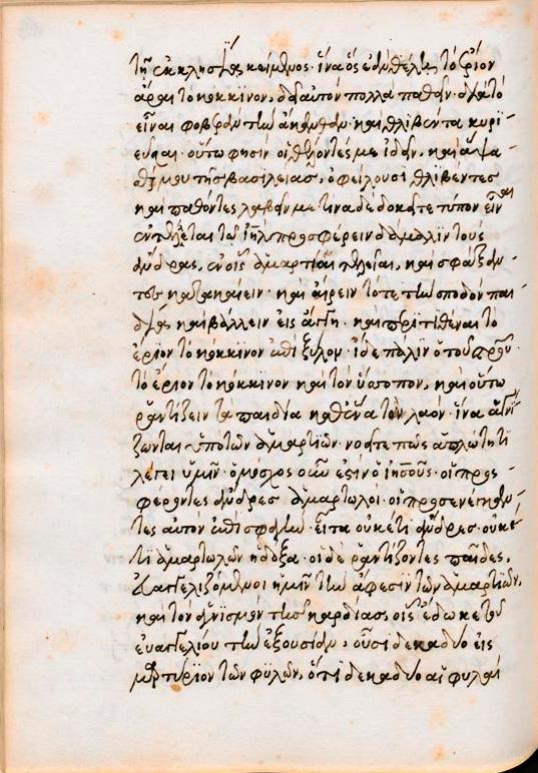 τῇ ἐκκλησίᾳ κείμενος· ἵνα ὃς ἐὰν θέλῃ τὸ ἔριον
ἆραι τὸ κόκκινον, δεῖ αὐτὸν πολλὰ παθεῖν διὰ τὸ
εἶναι φοβερὰν τὴν ἄκανθαν· καὶ θλιβέντα κυρι-
εῦσαι· οὕτω φησὶν οἱ θέλοντές με ἰδεῖν, καὶ ἅψα-
σθαί μου τῆς βασιλείας, ὀφείλουσι θλιβέντες
καὶ παθόντες λαβεῖν με· τίνα δὲ δοκεῖτε τύπον εἶναι
ἐντέλλεται τῷ ἰηλ προσφέρειν δάμαλιν τοὺς
ἄνδρας, ἐν οἷς ἁμαρτίαι τέλειαι, καὶ σφάξαν-
τας κατακαίειν· καὶ αἴρειν τότε τὴν σποδὸν παι-
δία, καὶ βάλλειν εἰς ἄγγη· καὶ περιτιθέναι τὸ
ἔριον τὸ κόκκινον ἐπὶ ξύλον· ἴδε πάλιν ὁ τύπος ὁ τοῦ σταυροῦ·
τὸ ἔριον τὸ κόκκινον καὶ τὸν ὕσωπον, καὶ οὕτω
ῥαντίζειν τὰ παιδία καθ' ἕνα τὸν λαόν· ἵνα ἁγνί-
ζωνται ὑπὸ τῶν ἁμαρτιῶν· νοεῖτε πῶς ἁπλότητι
λέγει ὑμῖν· ὁ μόσχος οὖν ἐστιν ὁ ἰησοῦς· οἱ προσ-
φέροντες ἄνδρες ἁμαρτωλοί· οἱ προσενέγκαν-
τες αὐτὸν ἐπὶ σφαγήν· εἶτα οὐκέτι ἄνδρες· οὐκέ-
τι ἁμαρτωλῶν ἡ δόξα· οἱ δὲ ῥαντίζοντες παῖδες,
εὐαγγελιζόμενοι ἡμῖν τὴν ἄφεσιν τῶν ἁμαρτιῶν,
καὶ τὸν ἁγνισμὸν τῆς καρδίας, οἷς ἔδωκε τοῦ
εὐαγγελίου τὴν ἐξουσίαν, οὖσι δεκαδύο εἰς
μαρτύριον τῶν φυλῶν, ὅτι δεκαδύο αἱ φυλαὶ